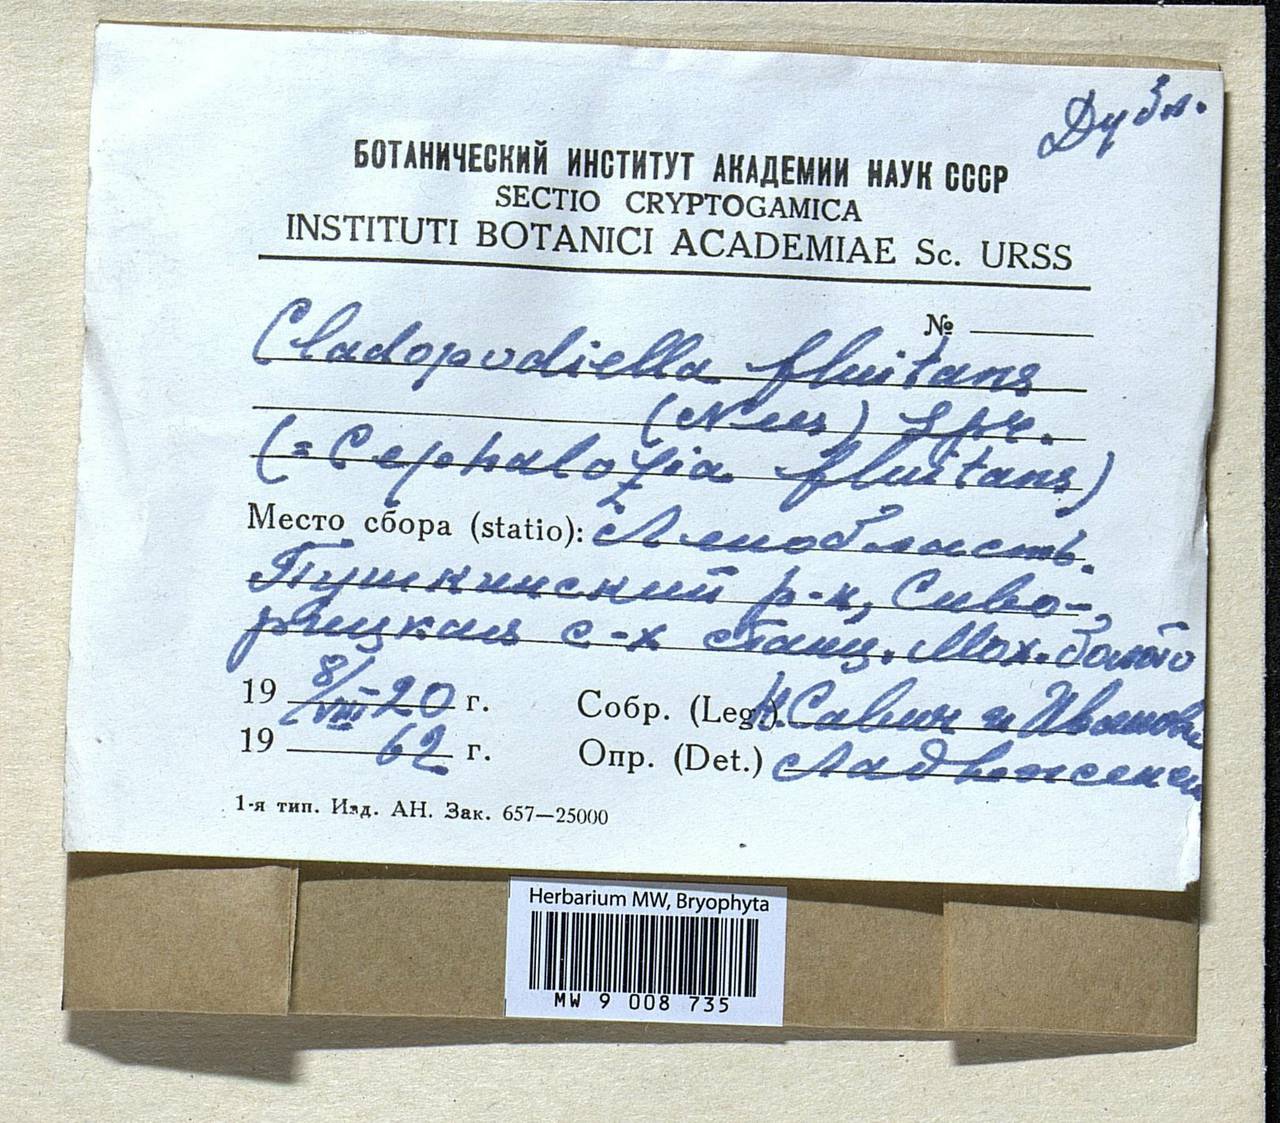 Дубл.
БОТАНИЧЕСКИЙ ИНСТИТУТ АКАДЕМИИ НАУК СССР
SECTIO CRYPTOGAMICA
INSTITUTI BOTANICI ACADEMIAE Sc. URSS
№
Cladopodiella fluitans
(Nees) Spr.
(= Cephalozia fluitans)
Место сбора (statio): Ленобласть.
Пушкинский р-н, Сиво-
рицкая с-х станц. Мох. болото
19 8/VIII 20 г. Собр. (Leg.) Савич и Иванова
19 62 г. Опр. (Det.) Ладыженск
1-я тип. Изд. АН. Зак. 657—25000
Herbarium MW, Bryophyta
MW 9 008 735